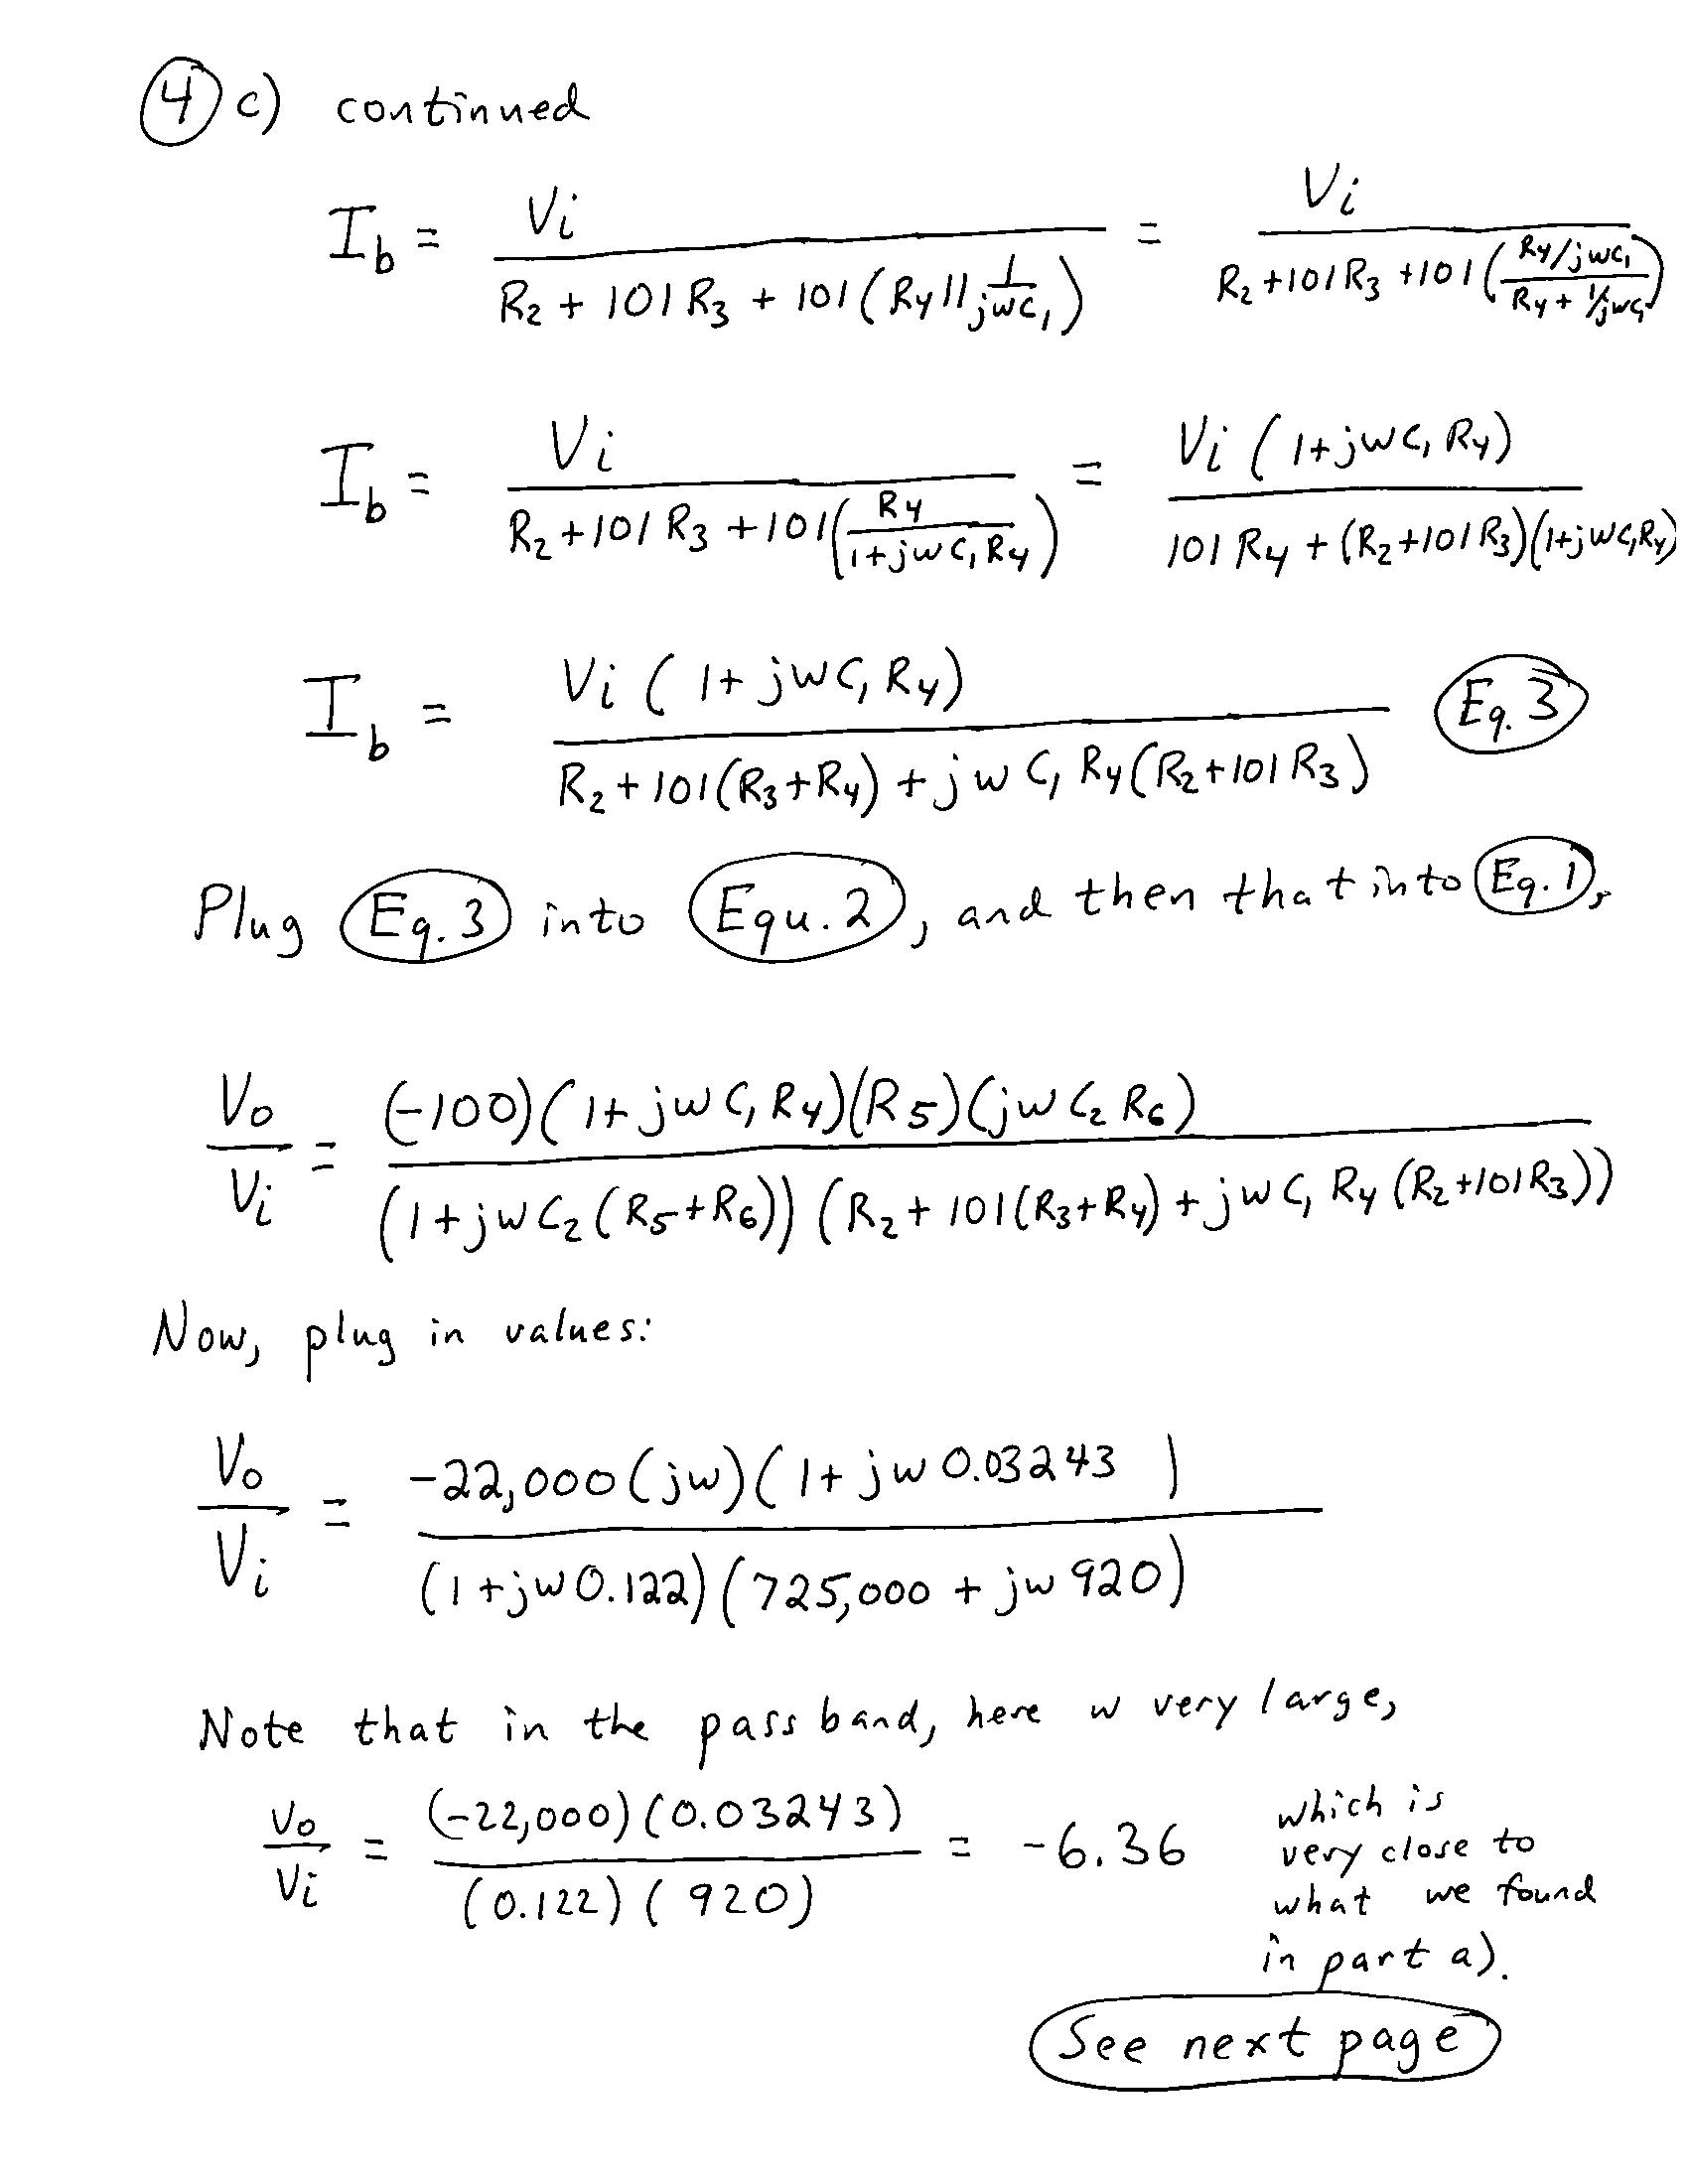 ④ c) continued
I_b = Vi / (R₂ + 101 R₃ + 101 (R₄ || 1/jωC₁)) = Vi / (R₂ + 101 R₃ + 101 ((R₄/jωC₁) / (R₄ + 1/jωC₁)))
I_b = Vi / (R₂ + 101 R₃ + 101 (R₄ / (1+jωC₁R₄))) = Vi (1+jωC₁R₄) / (101 R₄ + (R₂+101R₃)(1+jωC₁R₄))
I_b = Vi (1+jωC₁R₄) / (R₂ + 101(R₃+R₄) + jωC₁R₄(R₂+101R₃)) Eq. 3
Plug Eq. 3 into Equ. 2, and then that into Eq. 1,
Vo/Vi = (-100)(1+jωC₁R₄)(R₅)(jωC₂R₆) / (1+jωC₂(R₅+R₆)) (R₂ + 101(R₃+R₄) + jωC₁R₄(R₂+101R₃))
Now, plug in values:
Vo/Vi = -22,000 (jω)(1+jω0.03243) / (1+jω0.122)(725,000 + jω920)
Note that in the pass band, here ω very large,
Vo/Vi = (-22,000)(0.03243) / (0.122)(920) = -6.36
which is
very close to
what we found
in part a).
See next page